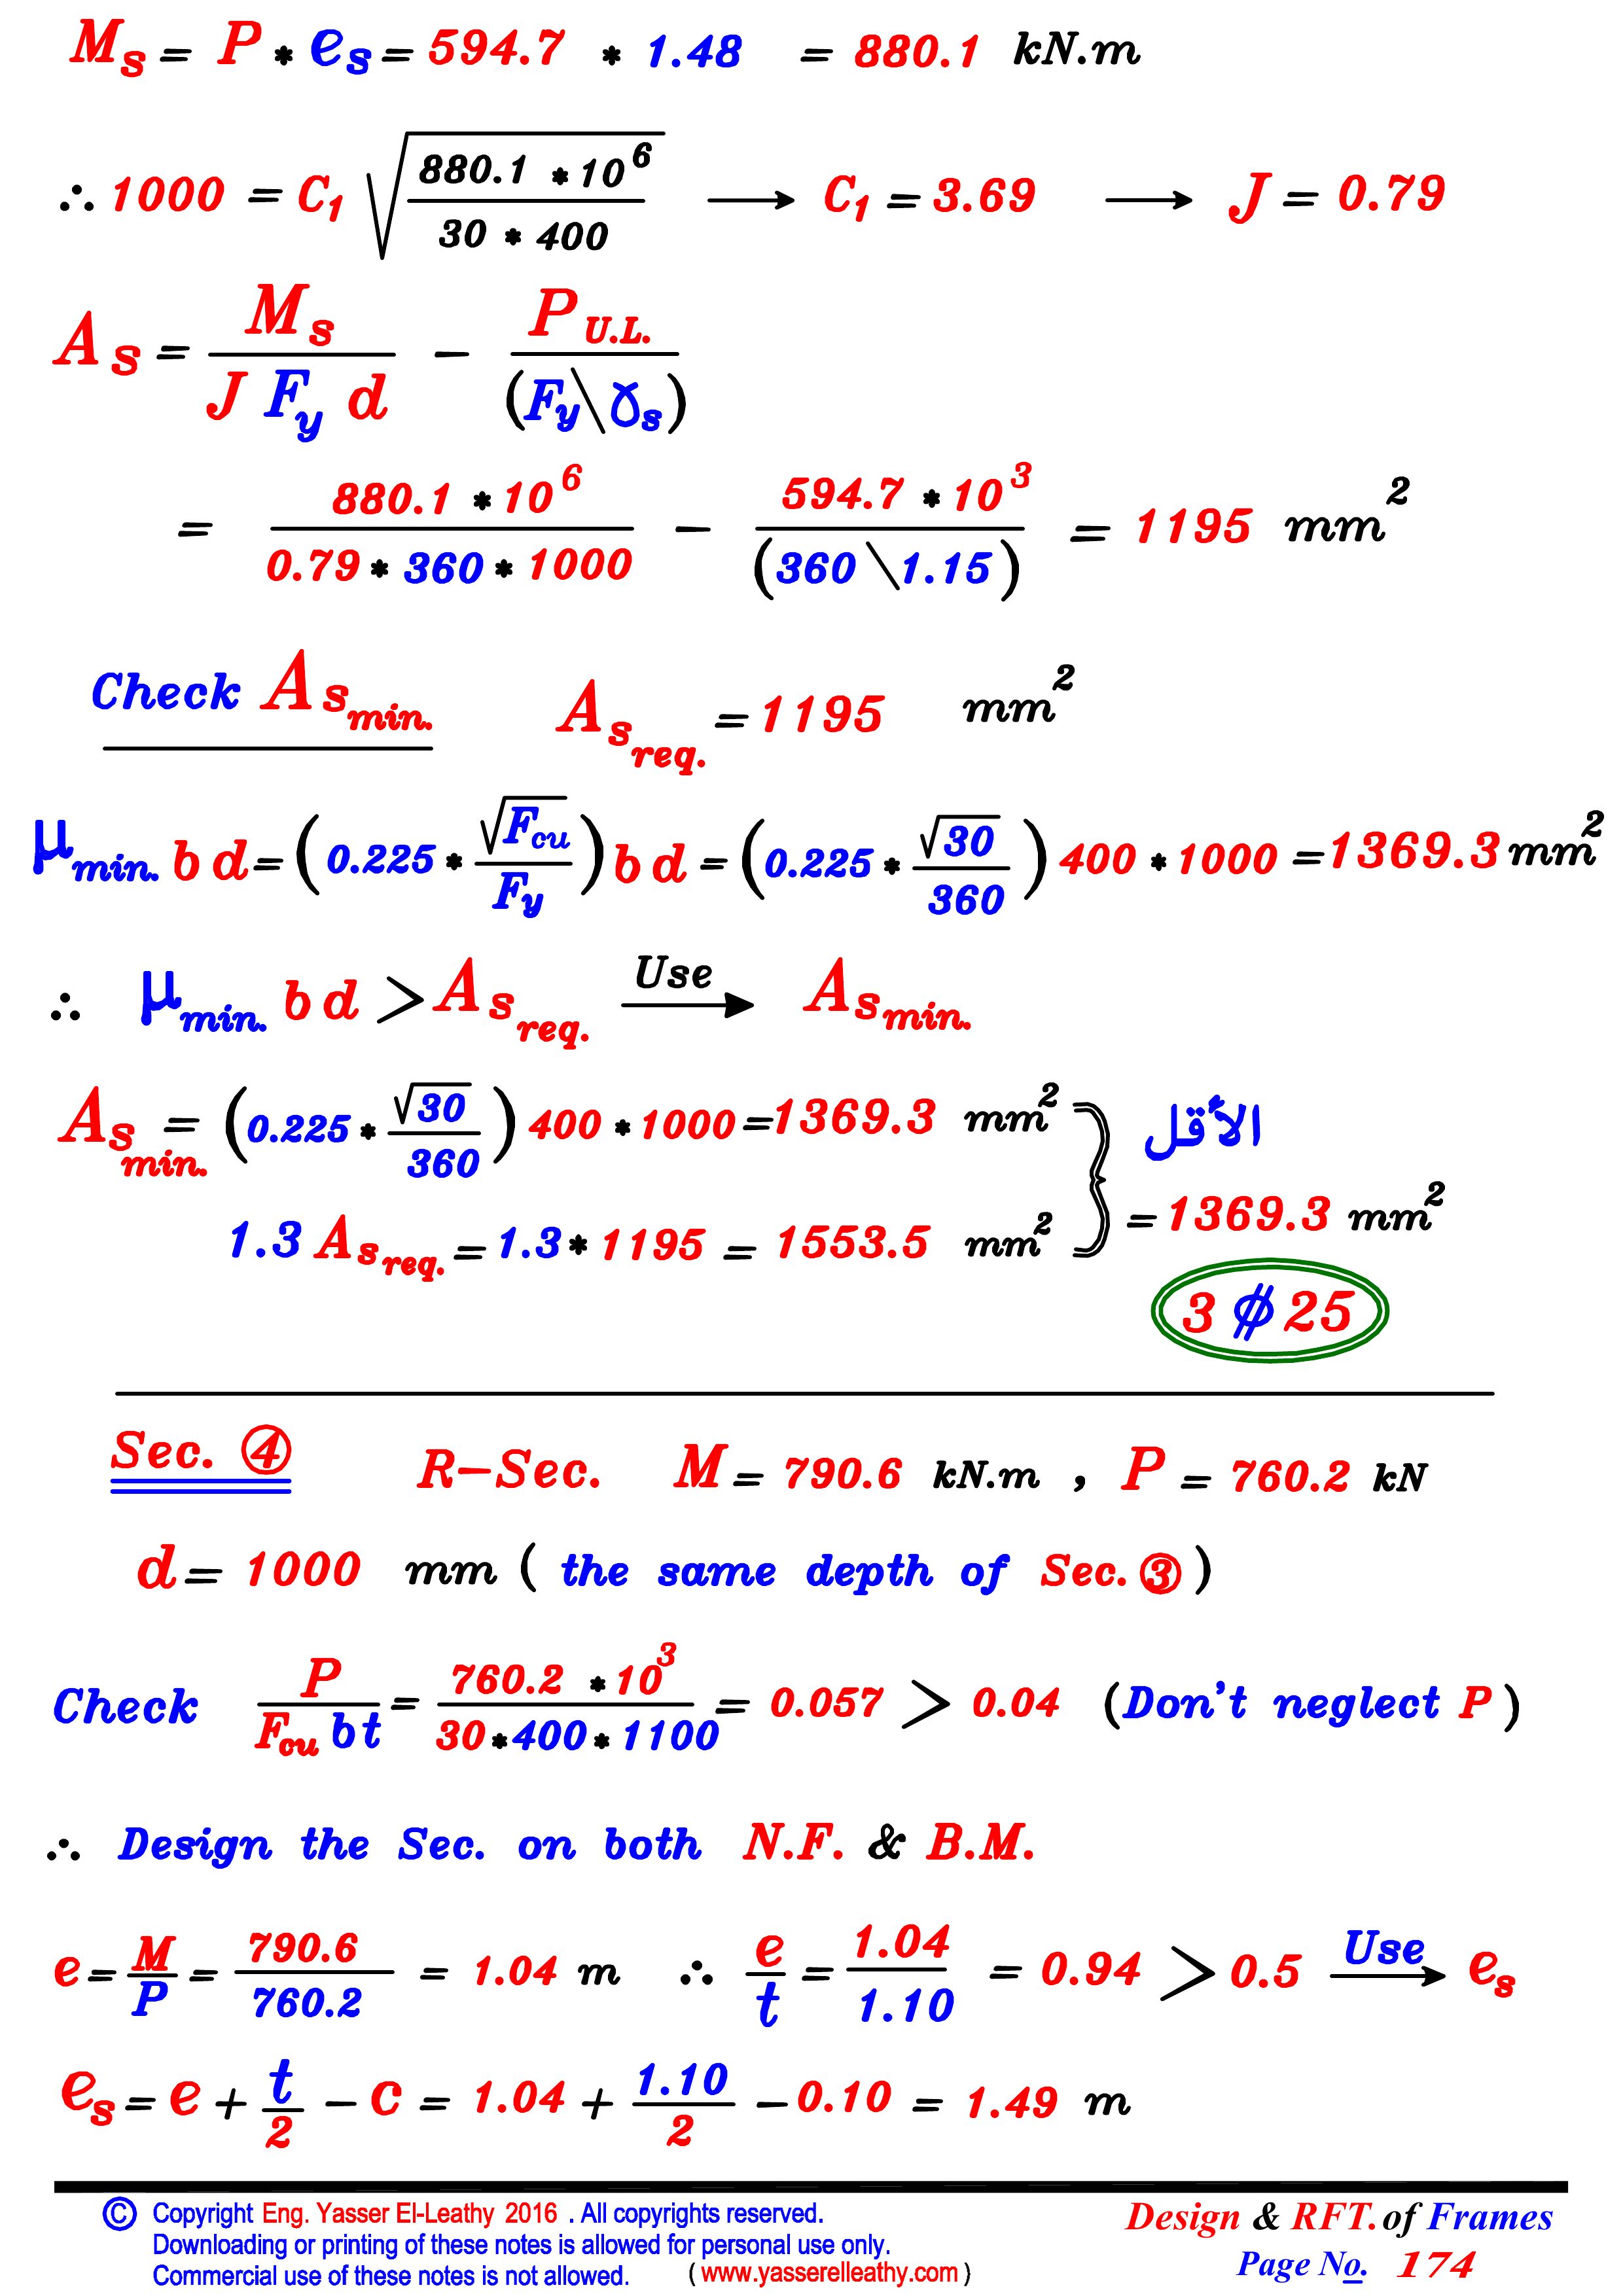 Ms = P * es = 594.7 * 1.48 = 880.1 kN.m
∴ 1000 = C1 √(880.1 * 10^6 / 30 * 400) → C1 = 3.69 → J = 0.79
As = Ms / J Fy d − P U.L. / (Fy \ γs)
= 880.1 * 10^6 / 0.79 * 360 * 1000 − 594.7 * 10^3 / (360 \ 1.15) = 1195 mm²
Check As min. As req. = 1195 mm²
μ min. b d = (0.225 * √Fcu / Fy) b d = (0.225 * √30 / 360) 400 * 1000 = 1369.3 mm²
∴ μ min. b d > As req. Use → As min.
As min. = (0.225 * √30 / 360) 400 * 1000 = 1369.3 mm² } الأقل
1.3 As req. = 1.3 * 1195 = 1553.5 mm² = 1369.3 mm²
3 ϕ 25
Sec. ④ R-Sec. M = 790.6 kN.m , P = 760.2 kN
d = 1000 mm ( the same depth of Sec. ③ )
Check P / Fcu b t = 760.2 * 10^3 / 30 * 400 * 1100 = 0.057 > 0.04 (Don't neglect P )
∴ Design the Sec. on both N.F. & B.M.
e = M / P = 790.6 / 760.2 = 1.04 m ∴ e / t = 1.04 / 1.10 = 0.94 > 0.5 Use → es
es = e + t / 2 − c = 1.04 + 1.10 / 2 − 0.10 = 1.49 m
© Copyright Eng. Yasser El-Leathy 2016 . All copyrights reserved.
Downloading or printing of these notes is allowed for personal use only.
Commercial use of these notes is not allowed. ( www.yasserelleathy.com )
Design & RFT. of Frames
Page No. 174